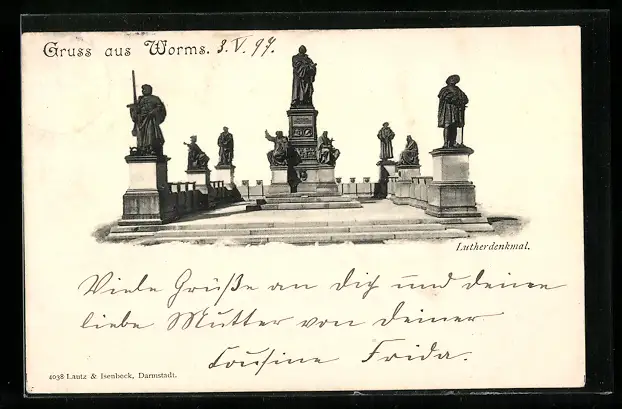 Gruss aus Worms. 3. V. 97.
Lutherdenkmal.
Viele Grüße an Dich und deine
liebe Mutter von deiner
Cousine Frida.
1038 Lautz & Isenbeck, Darmstadt.